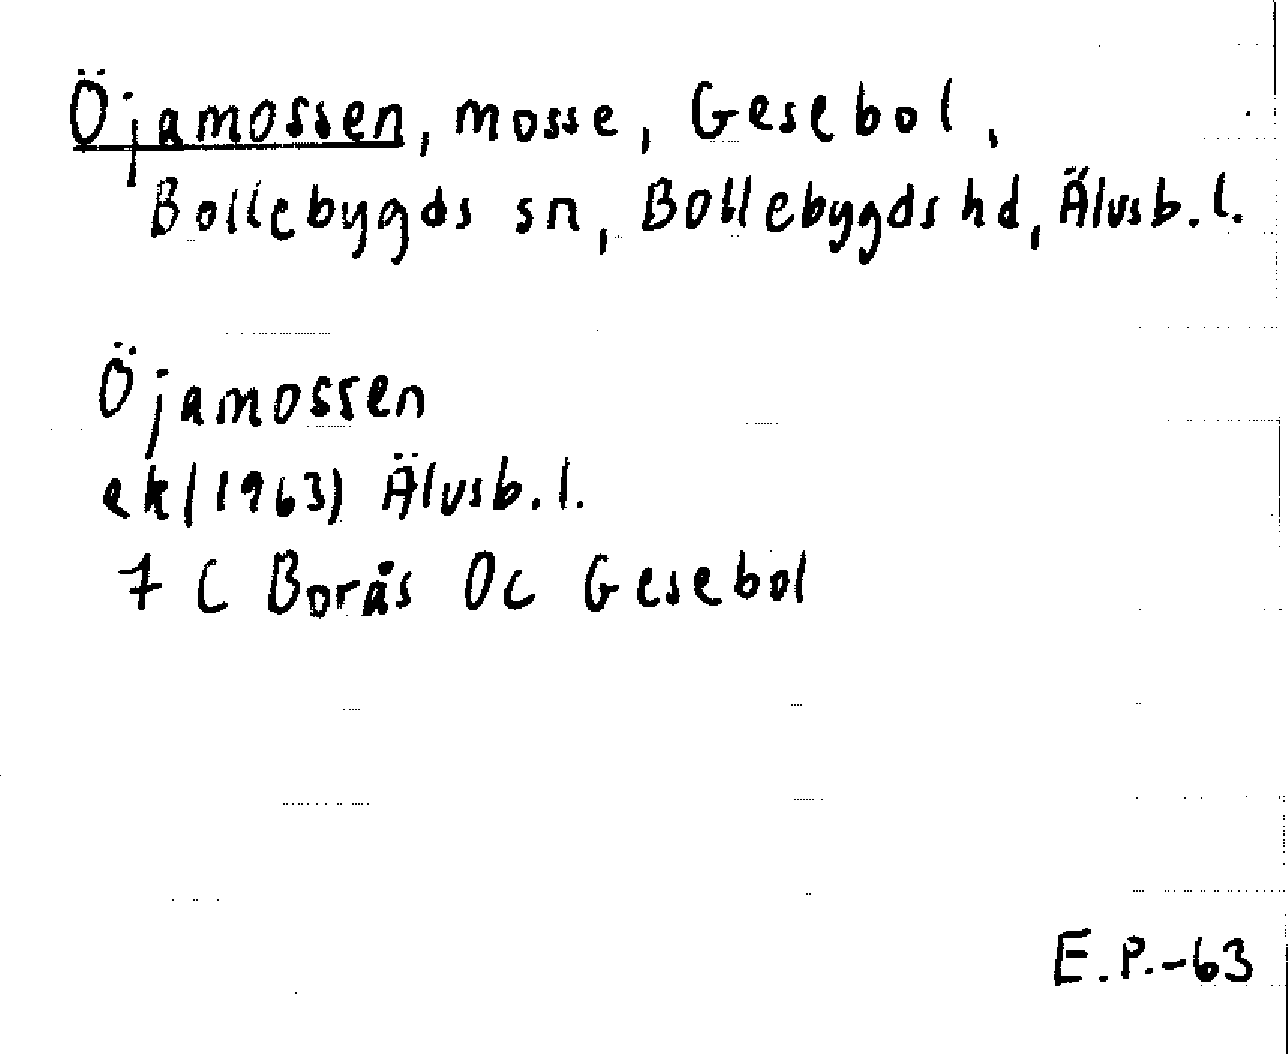 Öjamossen, mosse, Gesebol,
Bollebygds sn, Bollebygds hd, Älvsb. l.
Öjamossen
ek (1963) Älvsb. l.
7 C Borås 0c Gesebol
E.P.-63